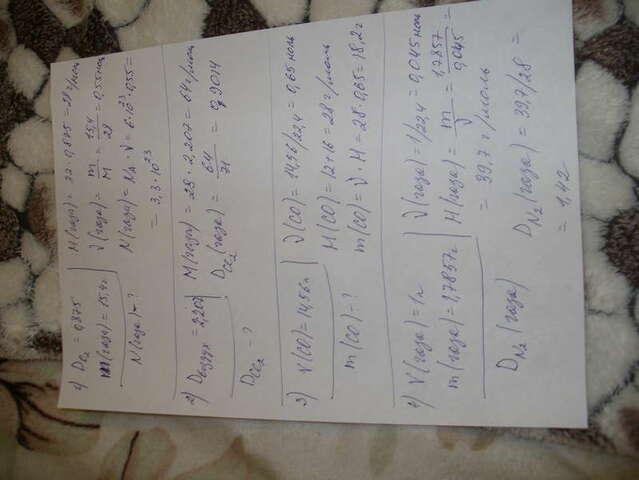 1) D O₂ = 0,875
m(газа) = 15,4г
N(газа) - ?
M(газа) = 32 · 0,875 = 28 г/моль
ν(газа) = m/M = 15,4/28 = 0,55 моль
N(газа) = Nₐ · ν = 6·10²³ · 0,55 =
= 3,3 · 10²³
2) Dвоздух = 2,207
D Cl₂ - ?
M(газа) = 28 · 2,207 = 64 г/моль
D Cl₂ (газа) = 64/71 = 0,9014
3) V(CO) = 14,56л
m(CO) - ?
ν(CO) = 14,56/22,4 = 0,65 моль
M(CO) = 12+16 = 28 г/моль
m(CO) = ν · M = 28 · 0,65 = 18,2г
4) V(газа) = 1л
m(газа) = 1,7857г
D N₂ (газа)
ν(газа) = 1/22,4 = 0,045 моль
M(газа) = m/ν = 1,7857/0,045 =
= 39,7 г/моль
D N₂ (газа) = 39,7/28 =
= 1,42